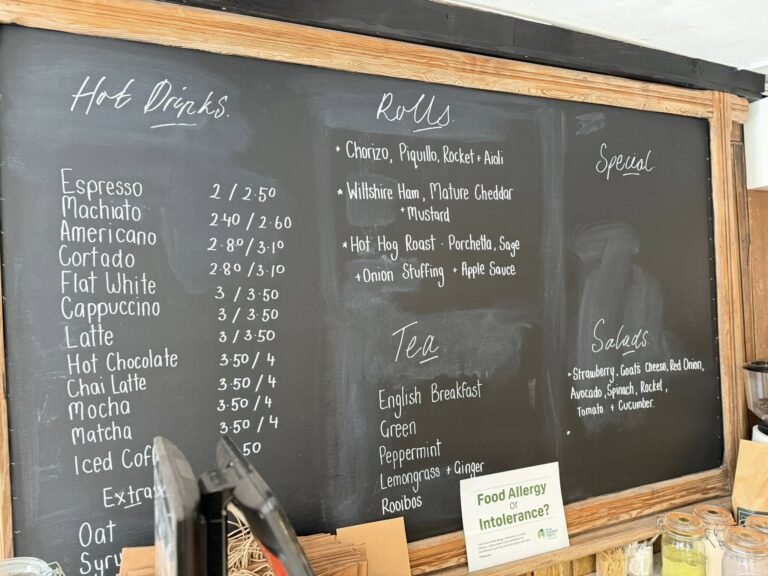 Hot Drinks.
Espresso 2 / 2.50
Machiato 2.40 / 2.60
Americano 2.80 / 3.10
Cortado 2.80 / 3.10
Flat White 3 / 3.50
Cappuccino 3 / 3.50
Latte 3 / 3.50
Hot Chocolate 3.50 / 4
Chai Latte 3.50 / 4
Mocha 3.50 / 4
Matcha 3.50 / 4
Iced Coff 50
Extras
Oat
Syru
Rolls
* Chorizo, Piquillo, Rocket + Aioli
* Wiltshire Ham, Mature Cheddar
+ Mustard
* Hot Hog Roast - Porchetta, Sage
+ Onion Stuffing + Apple Sauce
Tea
English Breakfast
Green
Peppermint
Lemongrass + Ginger
Rooibos
Special
Salads.
* Strawberry, Goat's Cheese, Red Onion,
Avocado, Spinach, Rocket,
Tomato + Cucumber.
*
Food Allergy
or
Intolerance?